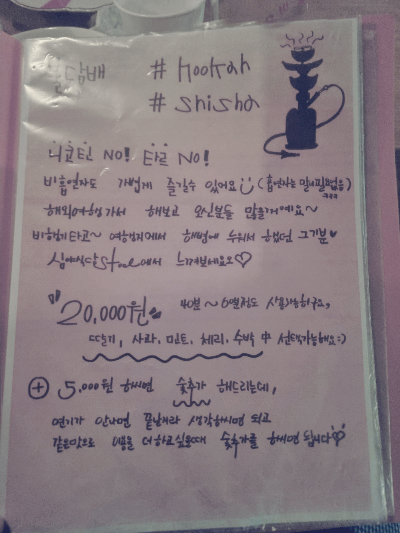 물담배 # hookah
# shisha
니코틴 NO! 타르 NO!
비흡연자도 가볍게 즐길수 있어요 (흡연자는 말이필요없음 ㅋㅋㅋ)
해외여행가서 해보고 오신분들 많을거예요~
비행기타고~ 여행지에서 해변에 누워서 했던 그기분♥
심야식당 Stool에서 느껴보세요♡
"20,000원" 40분~ 60분정도 사용가능하구요,
딸기, 사과, 민트, 체리, 수박 中 선택가능해요:)
+ 5,000원 하시면 숯추가 해드리는데,
연기가 안나면 끝난거라 생각하시면 되고
같은맛으로 이용을 더 하고싶을때 숯추가를 하시면 됩니다♡